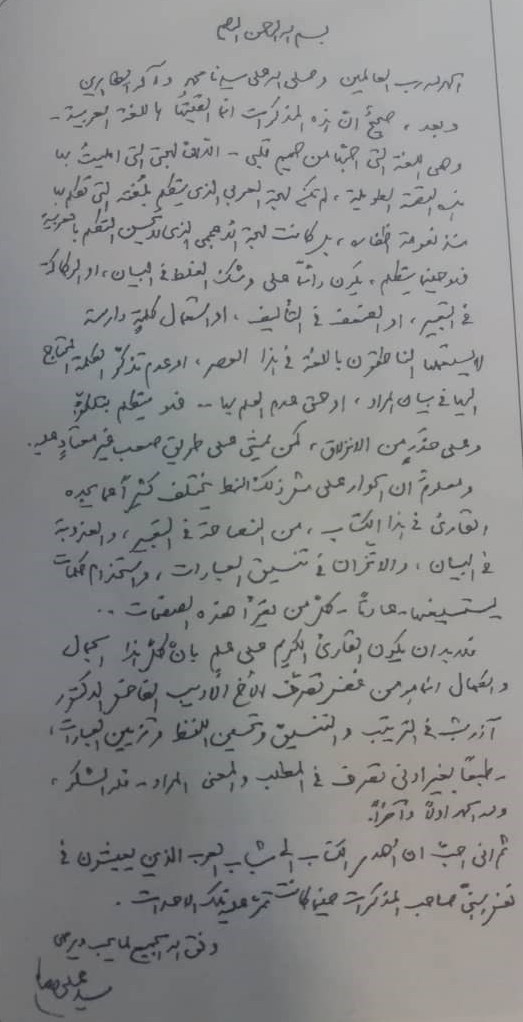 بسم الله الرحمن الرحيم
الحمد لله رب العالمين وصلى الله على سيدنا محمد وآله الطاهرين
وبعد، صحيحٌ أنّ هذه المذكرات انما ألقيتُها باللغة العربية -
وهى اللغة التى احبّها من صميم قلبى - الّا أنّ لهجتى التى امليتُ بها
هذه القصة الطويلة، لم تكن لهجة العربي الذى يتكلم بلغته التى تكلم بها
منذ نعومة اظفاره، بل كانت لهجة الأعجمى الذى لا يُحسن التكلم بالعربية
فهو حينما يتكلم، يكون دائماً على وشك الغلط فى البيان، او الركاكة
فى التعبير، او الضعف فى التأليف، او استعمال كلمةٍ دارسة
لا يستعملها الناطقون باللغة فى هذا العصر، او عدم تذكّر الكلمة المحتاج
اليها فى بيان المراد، او حتى عدم العلم بها -- فهو يتكلم بتلكّؤٍ
وعلى حذَرٍ من الانزلاق، كمن يمشى على طريقٍ صعب غير معتادٍ عليه.
ومعلومٌ ان الحوار على مثل ذلك النمط يختلف كثيراً عما يجده
القارئ فى هذا الكتاب، من الفصاحة فى التعبير، والعذوبة
فى البيان، والاتزان فى تنسيق العبارات، واستخدام كلمات
يستسيغها - عادةً - كلّ من يقرأ هذه الصفحات ..
فلابد ان يكون القارئ الكريم على علم بانّ كلّ هذا الجمال
والكمال انما هو من فضل تصرّف الأخ الأديب الفاضل الدكتور
آذرشب فى الترتيب والتنسيق وتحسين اللفظ وتزيين العبارات،
- طبعاً بغير ادنى تصرف فى المطلب والمعنى المراد - فله الشكر،
ولله الحمد اولاً وآخراً.
ثم انى احبّ ان اُهدى الكتاب الى شباب العرب الذين يعيشون فى
نفس سِنّ صاحب المذكرات حينما كانت تمرّ عليه تلك الاحداث.
وفق الله الجميع لما يحب ويرضى
سيد على